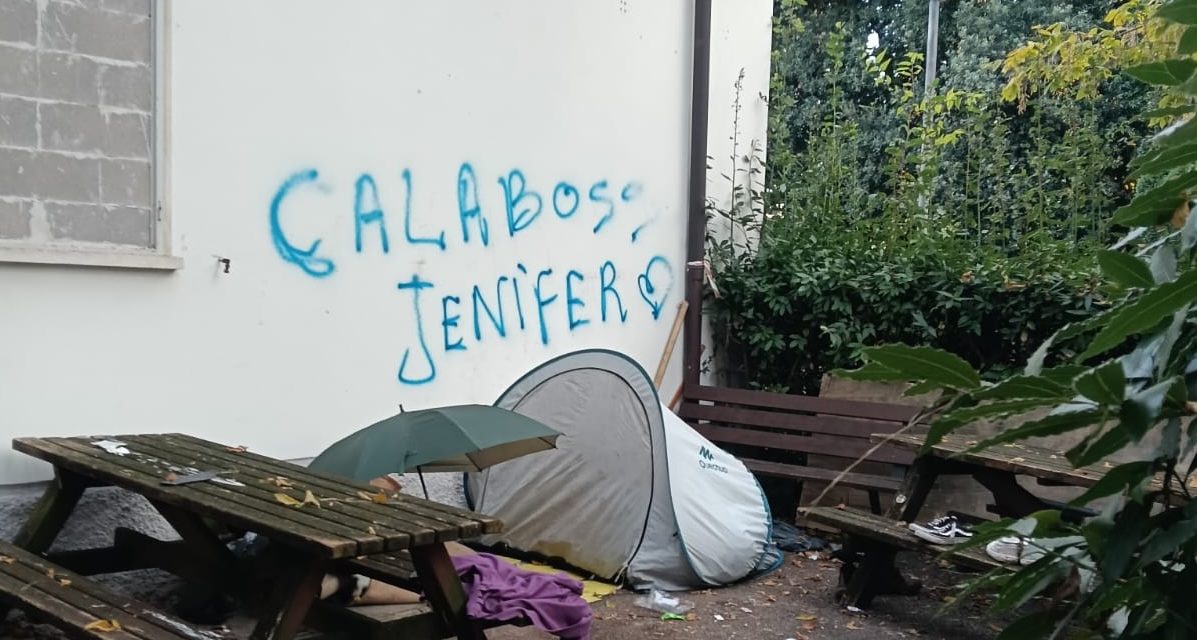 CALABOSO
JENIFER
Quechua